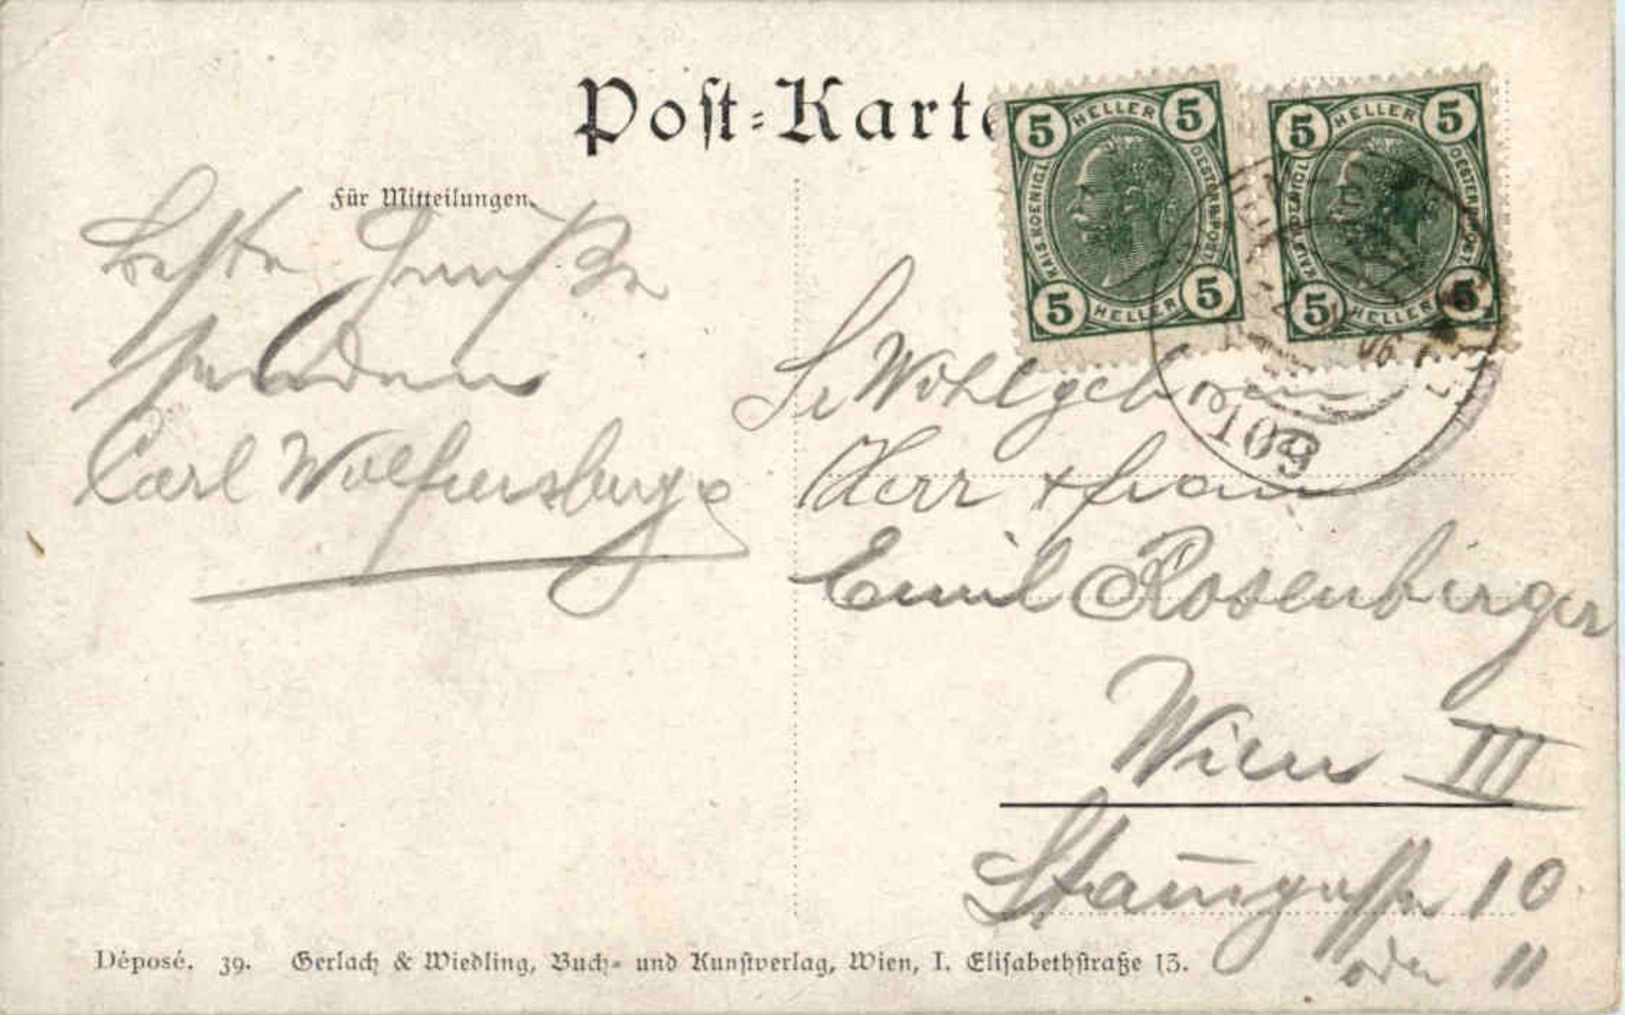 Post-Karte
Für Mitteilungen.
5 HELLER 5
KAIS. KOENIGL. OESTERR. POST
5 HELLER 5
5 HELLER 5
KAIS. KOENIGL. OESTERR. POST
5 HELLER 5
109
Beste Grüße
senden
Carl
Sr Wohlgeboren
Herr + Frau
Emil Rosenberger
Wien III
10
oder 11
Déposé. 39. Gerlach & Wiedling, Buch- und Kunstverlag, Wien, I. Elisabethstraße 13.